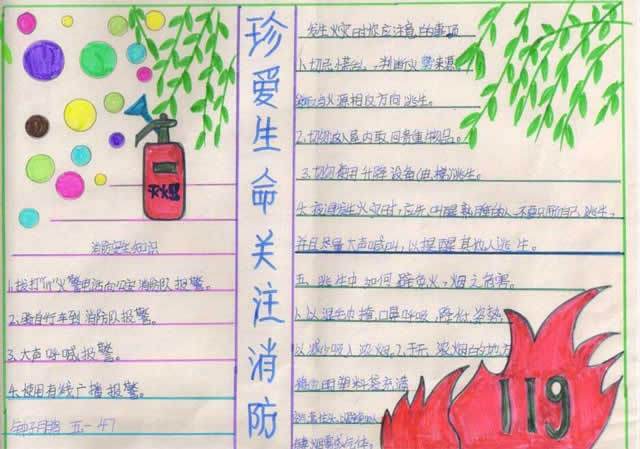 珍爱生命关注消防
灭火器
消防安全知识
1.拨打"119"火警电话向公安消防队报警。
2.骑自行车到消防队报警。
3.大声呼喊报警。
4.使用有线广播报警。
五一47
发生火灾时你应注意的事项
1.切忌慌乱,判断火势来源,
与火源相反方向逃生。
2.切勿返入屋内取回贵重物品。
3.切勿使用升降设备(电梯)逃生。
4.夜间发生火灾时,应先叫醒熟睡的人,不要只顾自己逃生,
并且尽量大声喊叫,以提醒其他人逃生。
五、逃生中如何避免火、烟之危害。
1、以湿毛巾掩口鼻呼吸,降低姿势
以减少吸入浓烟。2、在无浓烟的地方
用塑料袋充满
119